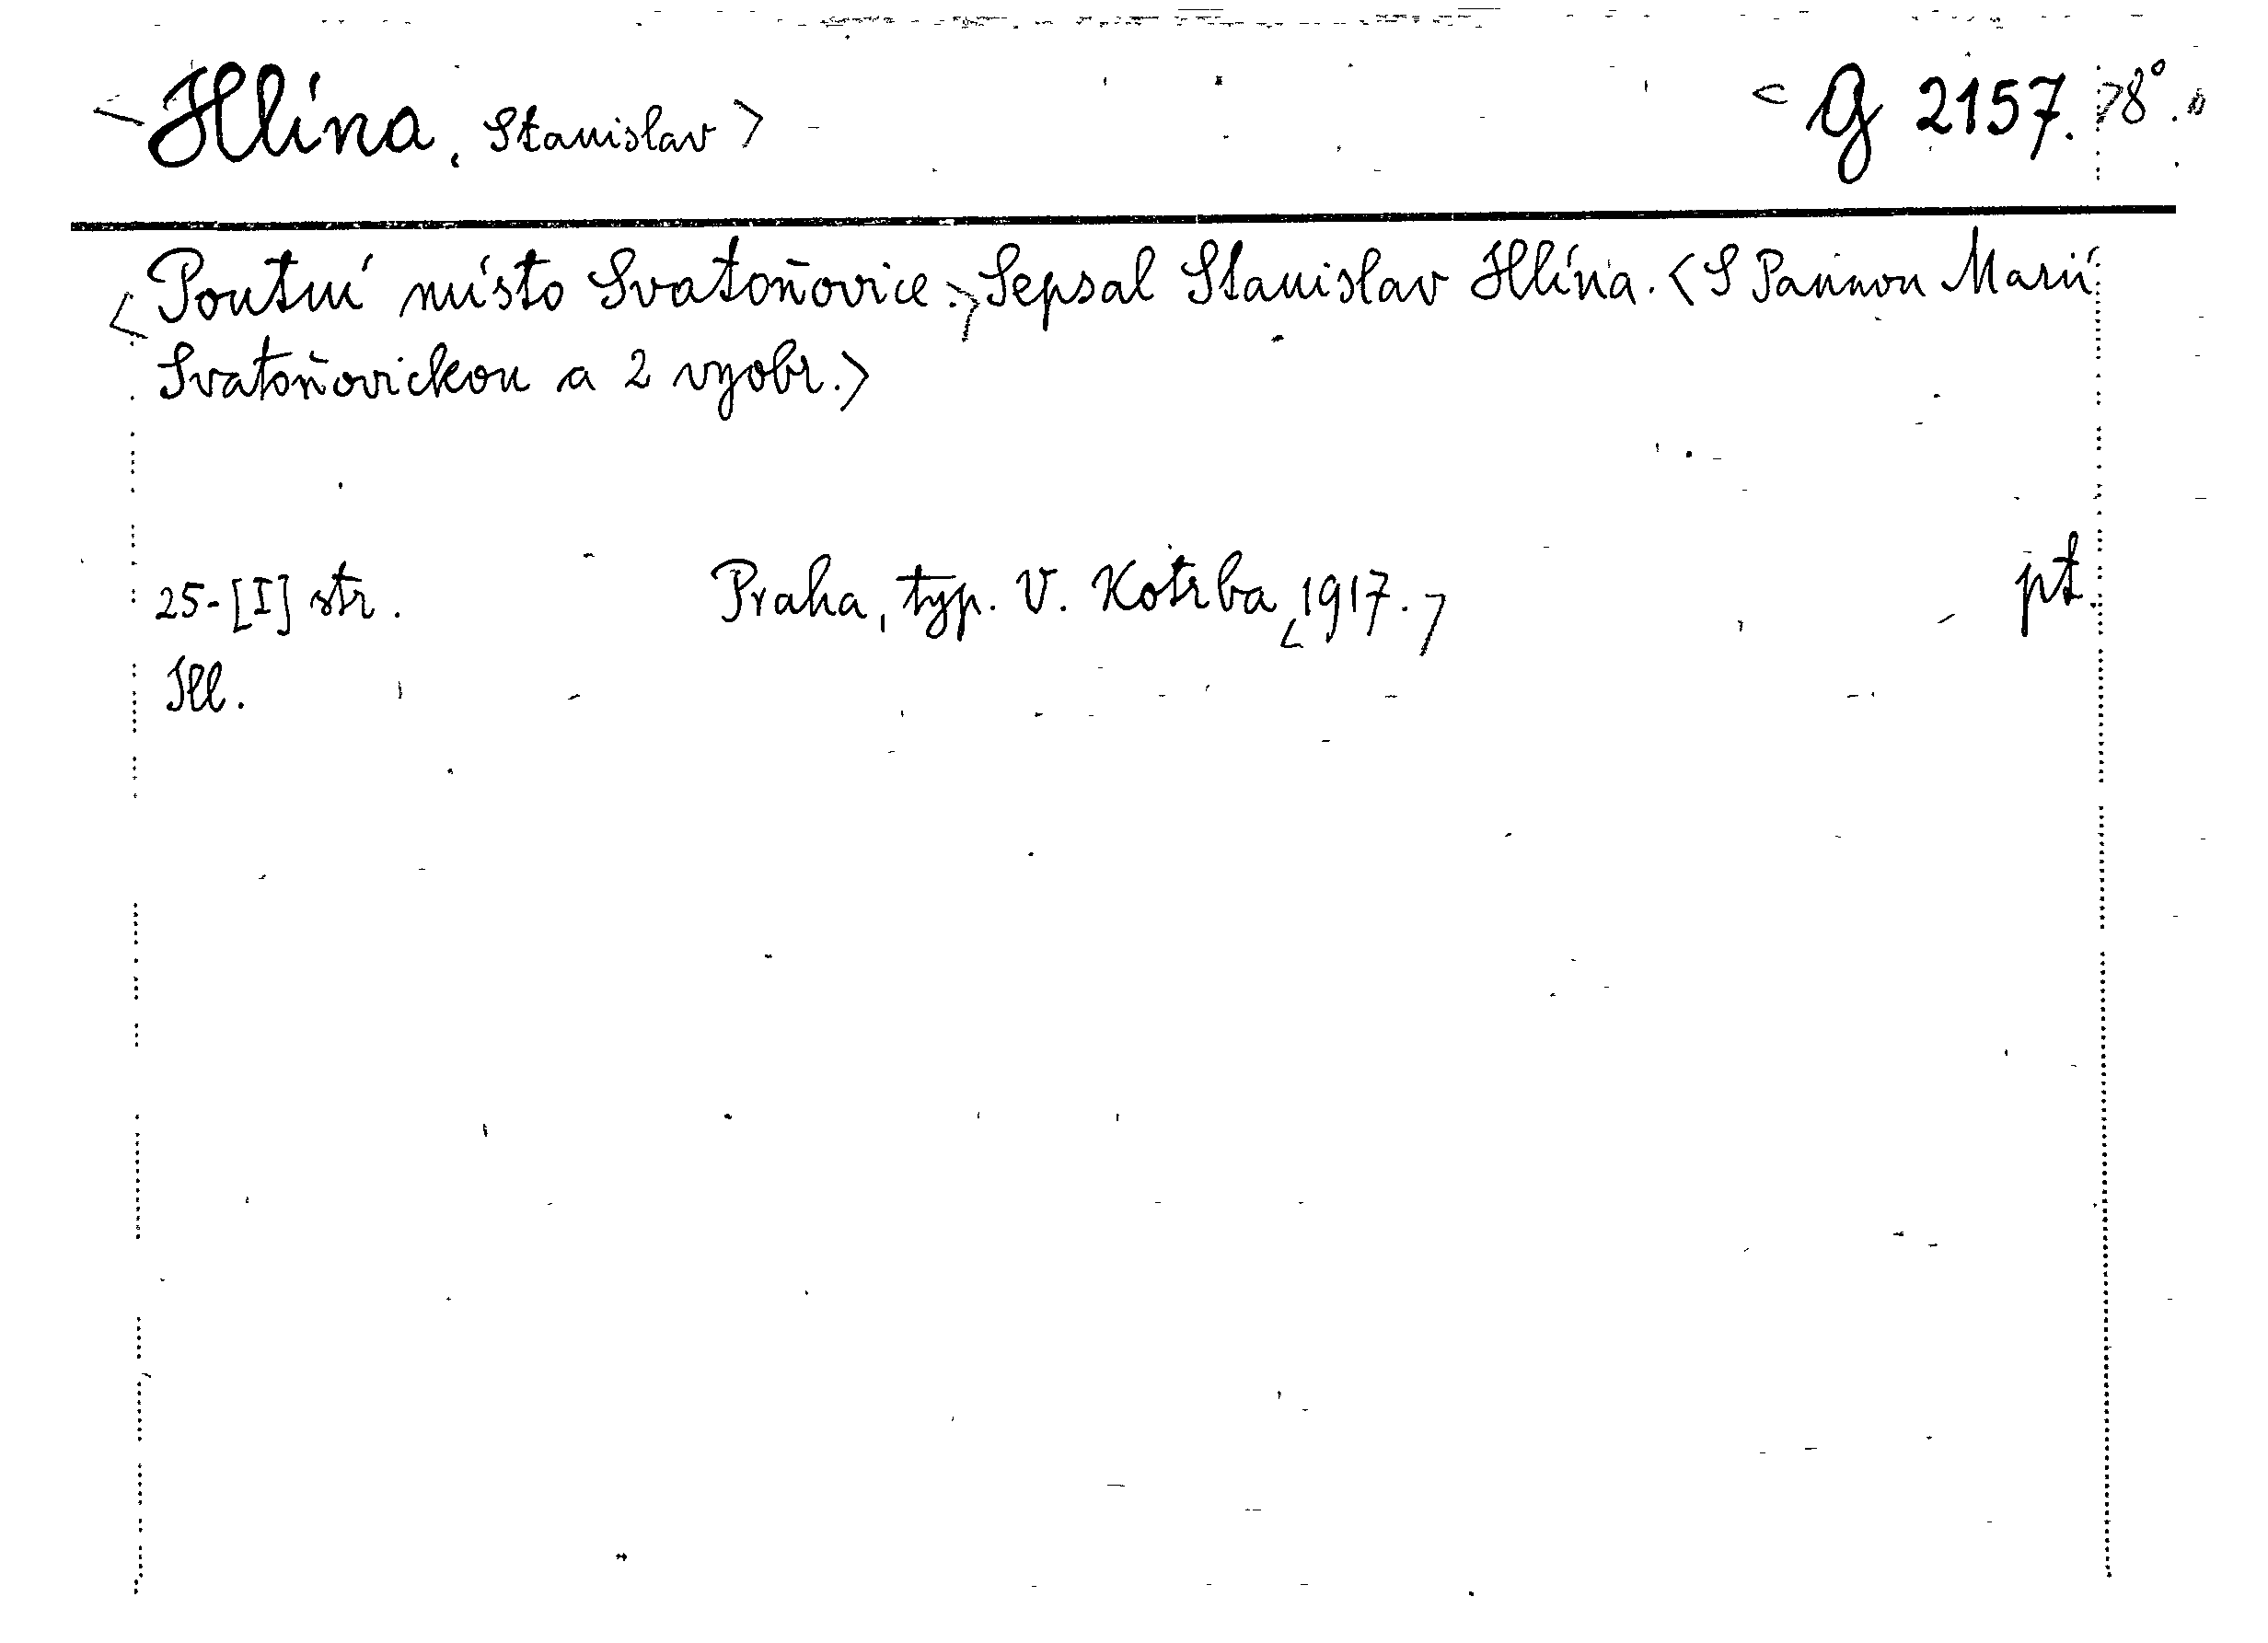 <Hlína, Stanislav> <G 2157.>8°.
<Poutní místo Svatoňovice.> Sepsal Stanislav Hlína. <S Pannou Marií
Svatoňovickou a 2 vyobr.>
25-[I] str. Praha, typ. V. Kotrba <1917.> pt.
Ill.